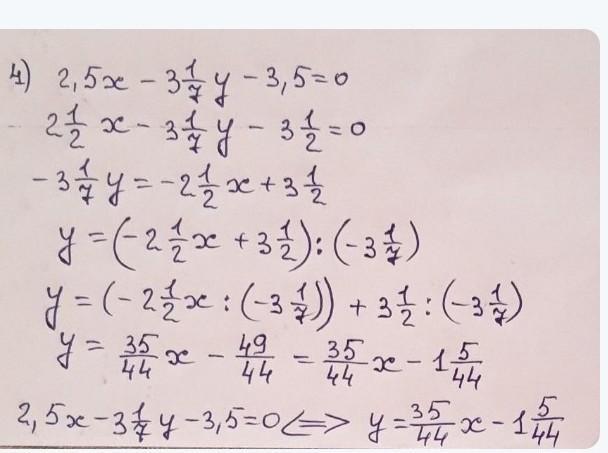 4) 2,5x - 3 1/7 y - 3,5 = 0
2 1/2 x - 3 1/7 y - 3 1/2 = 0
- 3 1/7 y = - 2 1/2 x + 3 1/2
y = (- 2 1/2 x + 3 1/2) : (- 3 1/7)
y = (- 2 1/2 x : (- 3 1/7)) + 3 1/2 : (- 3 1/7)
y = 35/44 x - 49/44 = 35/44 x - 1 5/44
2,5x - 3 1/7 y - 3,5 = 0 <=> y = 35/44 x - 1 5/44